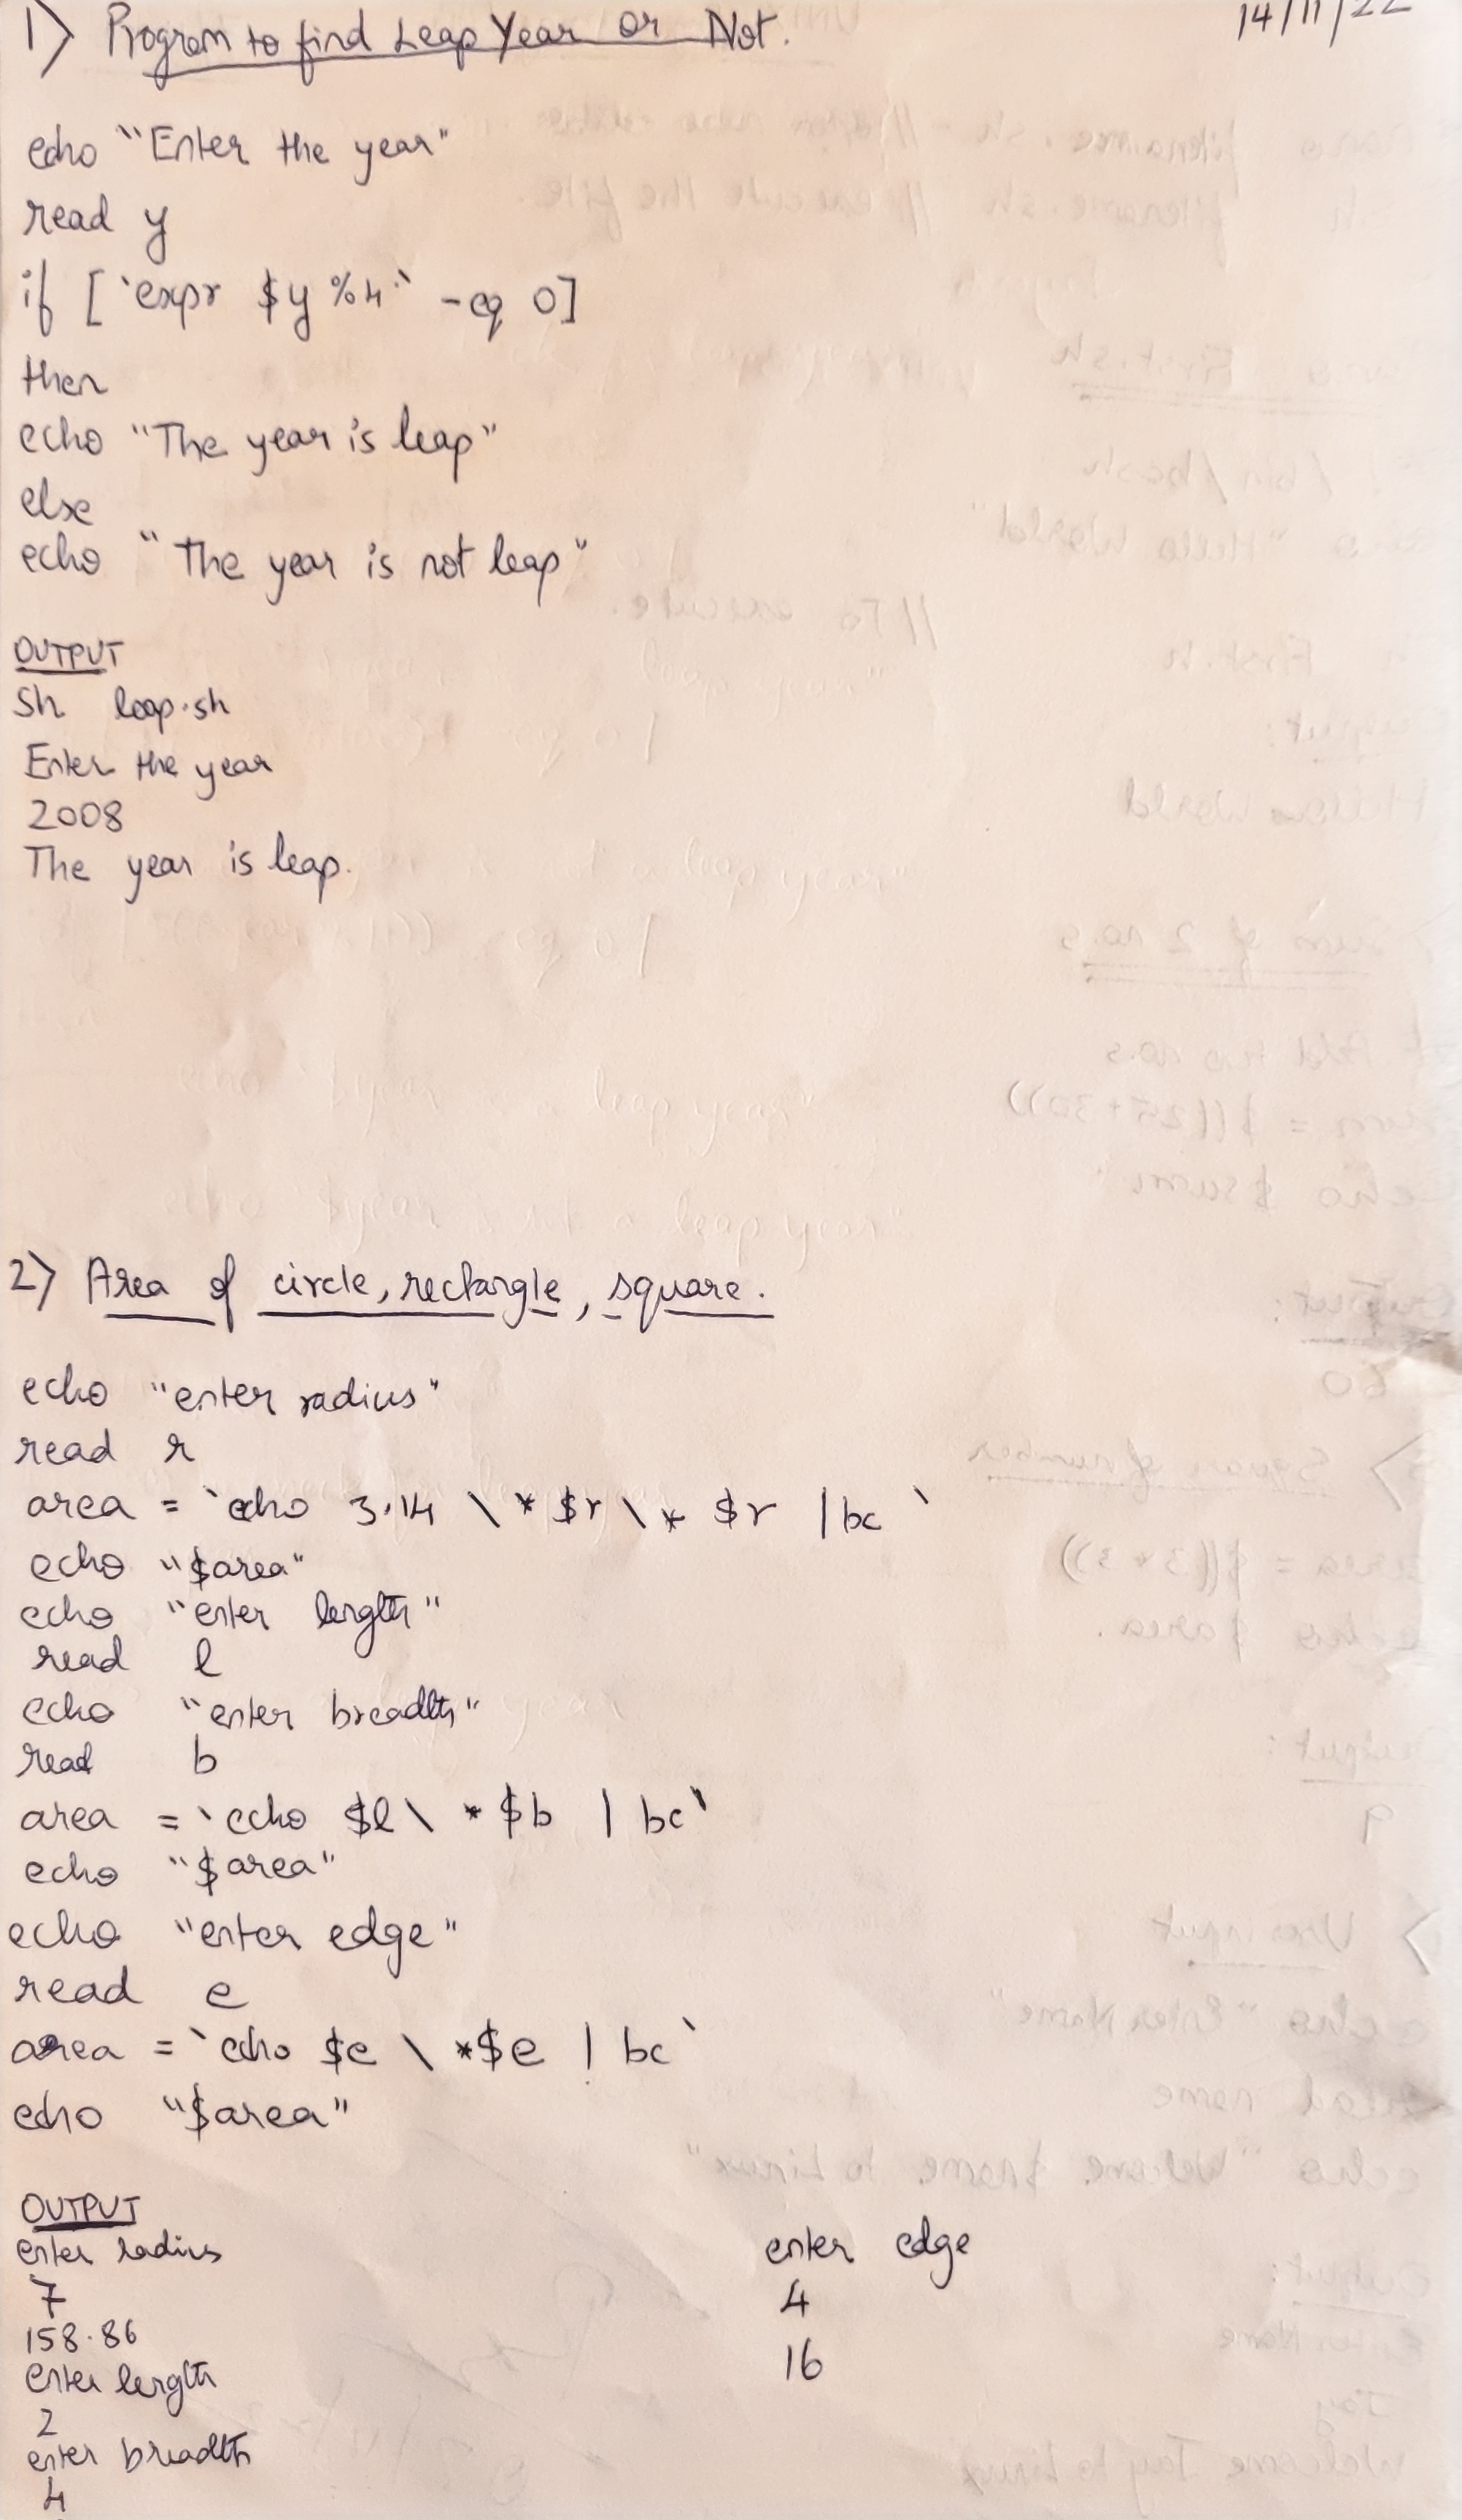 14/11/22
1) Program to find Leap Year or Not.
echo "Enter the year"
read y
if [ `expr $y %4` -eq 0]
then
echo "The year is leap"
else
echo "The year is not leap"
OUTPUT
Sh leap.sh
Enter the year
2008
The year is leap.
2) Area of circle, rectangle, square.
echo "enter radius"
read r
area = `echo 3.14 \* $r \* $r | bc `
echo "$area"
echo "enter length"
read l
echo "enter breadth"
read b
area = `echo $l \ * $b | bc`
echo "$area"
echo "enter edge"
read e
area = `echo $e \ *$e | bc`
echo "$area"
OUTPUT
enter radius
7
158.86
enter length
2
enter breadth
4
enter edge
4
16